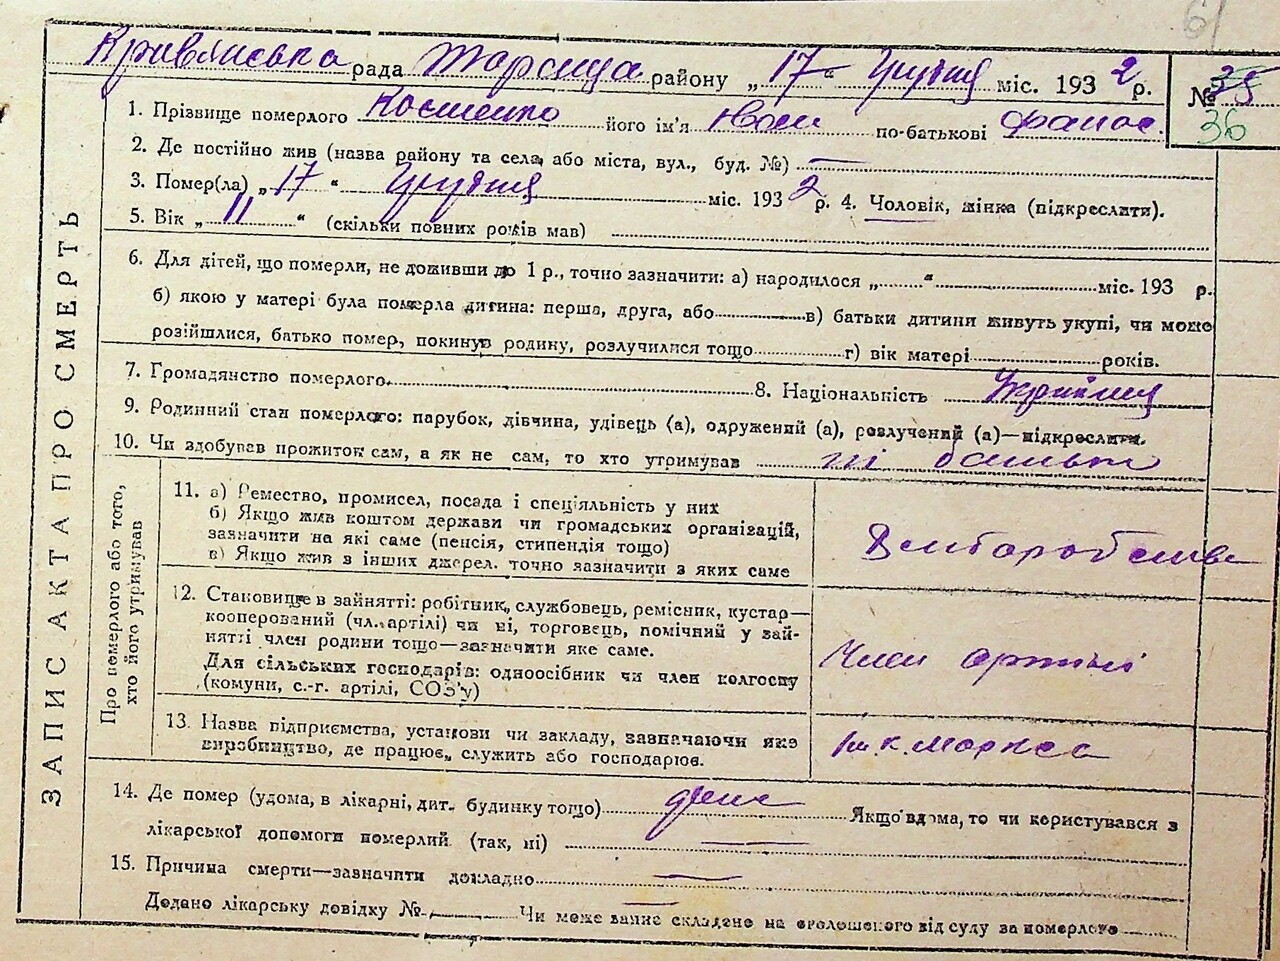 61
Кривянська рада Тараща району „17“ Грудня міс. 1932 р. № 35
36
1. Прізвище померлого Костенко його ім'я Іван по-батькові Фанас.
2. Де постійно жив (назва району та села, або міста, вул., буд. №) —
3. Помер(ла) „17“ Грудня міс. 1932 р. 4. Чоловік, жінка (підкреслити).
5. Вік „11“ (скільки повних років мав)
6. Для дітей, що померли, не доживши до 1 р., точно зазначити: а) народилося „ “ міс. 193 р.
б) якою у матері була померла дитина: перша, друга, або в) батьки дитини живуть укупі, чи може
розійшлися, батько помер, покинув родину, розлучилися тощо г) вік матері років.
7. Громадянство померлого 8. Національність
9. Родинний стан померлого: парубок, дівчина, удівець (а), одружений (а), розлучений (а)—підкреслити.
10. Чи здобував прожиток сам, а як не сам, то хто утримував ні батько
ЗАПИС АКТА ПРО СМЕРТЬ
Про померлого або того, хто його утримував
11. а) Ремество, промисел, посада і спеціяльність у них
б) Якщо жив коштом держави чи громадських організацій,
зазначити на які саме (пенсія, стипендія тощо)
в) Якщо жив з інших джерел. точно зазначити з яких саме
Хліборобство
12. Становище в зайнятті: робітник, службовець, ремісник, кустар—
кооперований (чл. артілі) чи ні, торговець, помічний у зай-
нятті член родини тощо—зазначити яке саме.
Для сільських господарів: одноосібник чи член колгоспу
(комуни, с.-г. артілі, СОЗ'у)
Член артілі
13. Назва підприємства, установи чи закладу, зазначаючи яке
виробництво, де працює, служить або господарює.
ім. К. Маркса
14. Де помер (удома, в лікарні, дит. будинку тощо) дома Якщо вдома, то чи користувався з
лікарської допомоги померлий (так, ні) —
15. Причина смерти—зазначити докладно —
Додано лікарську довідку № — Чи може запис складено на оголошеного від суду за померлого